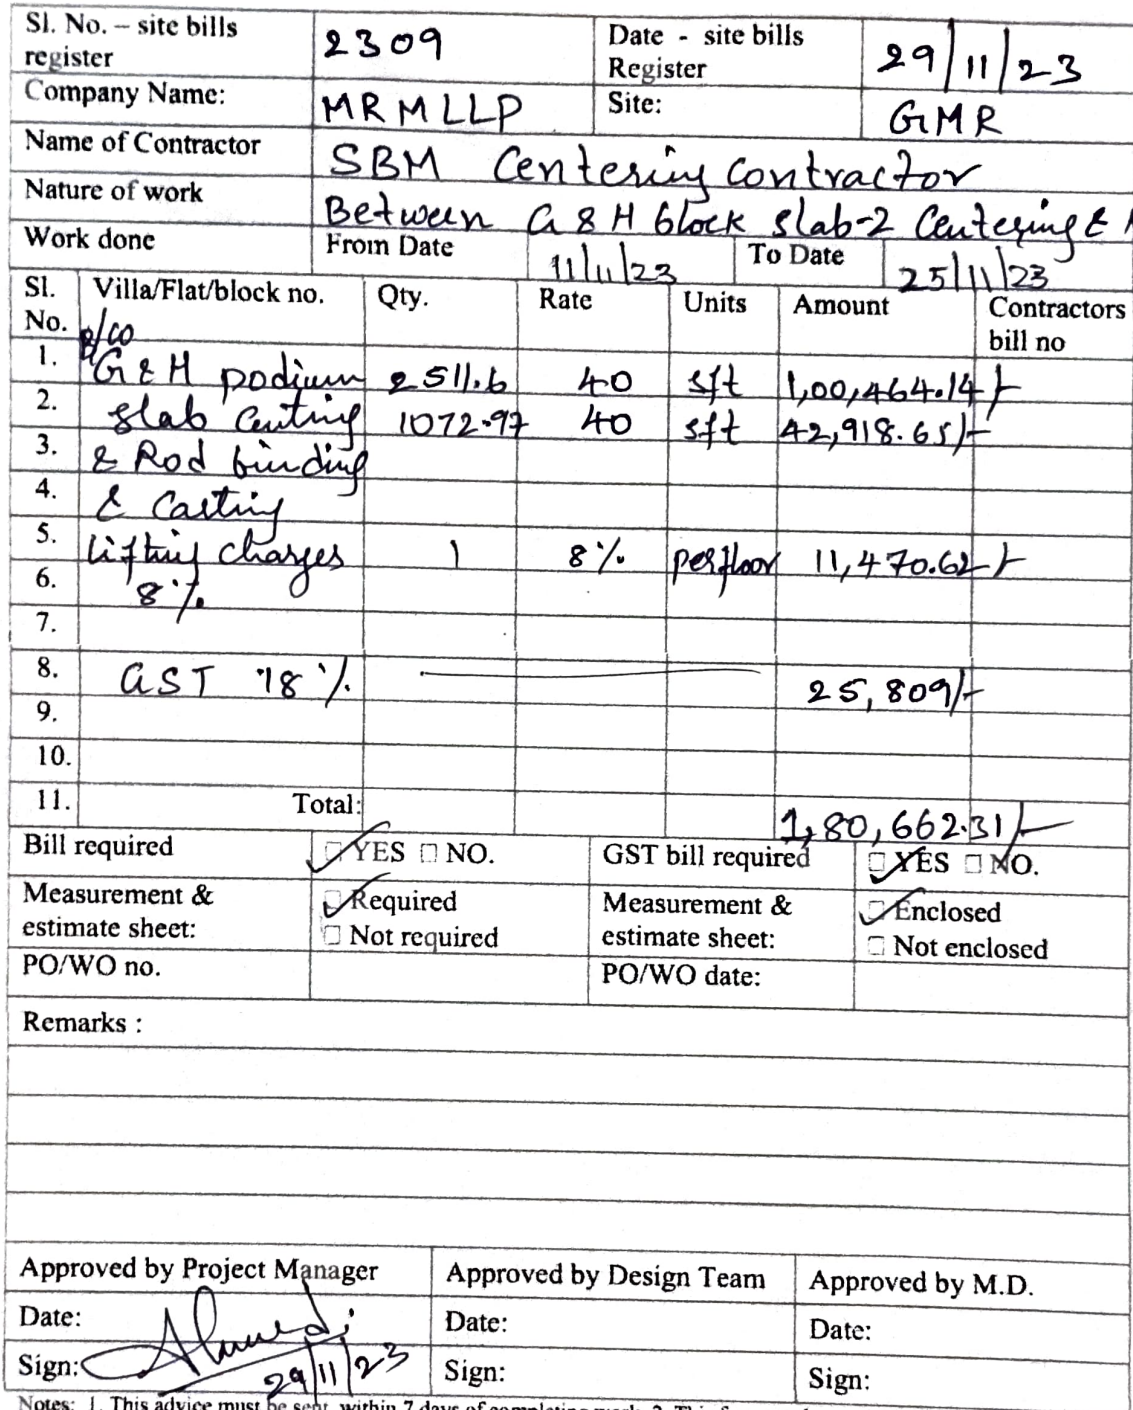 Sl. No. – site bills register 2309 Date - site bills Register 29/11/23
Company Name: MRMLLP Site: GMR
Name of Contractor SBM Centering contractor
Nature of work Between G & H block slab-2 Centering &
Work done From Date 11/11/23 To Date 25/11/23
Sl. No. Villa/Flat/block no. Qty. Rate Units Amount Contractors bill no
1. G & H podium 2511.6 40 sft 1,00,464.14/-
2. slab Centring 1072.97 40 sft 42,918.65/-
3. & Rod binding
4. & Casting
5. lifting charges 1 8% perfloor 11,470.62/-
6. 8%
7.
8. GST 18% 25,809/-
9.
10.
11. Total: 1,80,662.31/-
Bill required YES NO. GST bill required YES NO.
Measurement & estimate sheet: Required Not required Measurement & estimate sheet: Enclosed Not enclosed
PO/WO no. PO/WO date:
Remarks :
Approved by Project Manager Approved by Design Team Approved by M.D.
Date: Date: Date:
Sign: 29/11/23 Sign: Sign:
Notes: 1. This advice must be sent within 7 days of completing work. 2. This